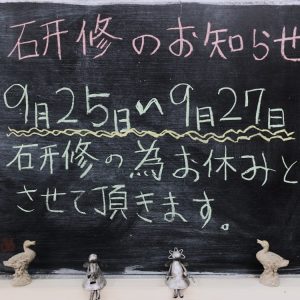 研修のお知らせ
9月25日〜9月27日
研修の為お休みと
させて頂きます。